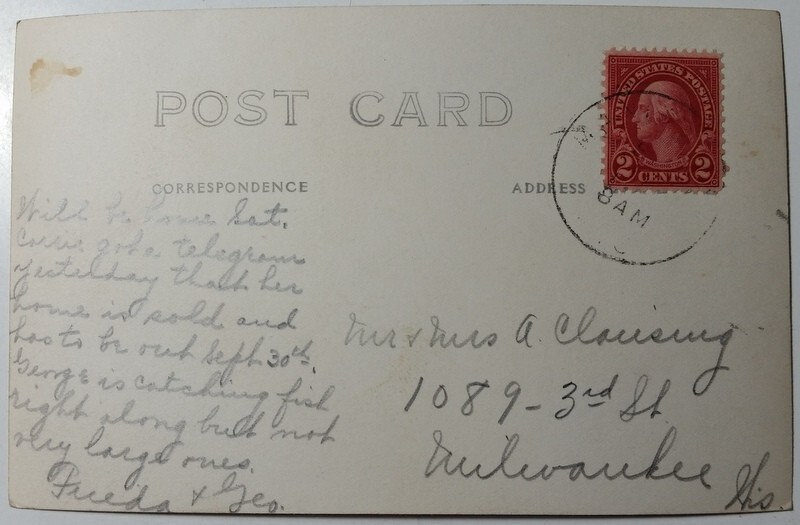 POST CARD
UNITED STATES POSTAGE
WASHINGTON
2 CENTS 2
8 AM
CORRESPONDENCE
ADDRESS
Will be home Sat.
Carrie got a telegram
yesterday that her
home is sold and
has to be out Sept 30th.
George is catching fish
right along but not
very large ones.
Frieda & Geo.
Mr & Mrs A. Clausing
1089 - 3rd St
Milwaukee
Wis.